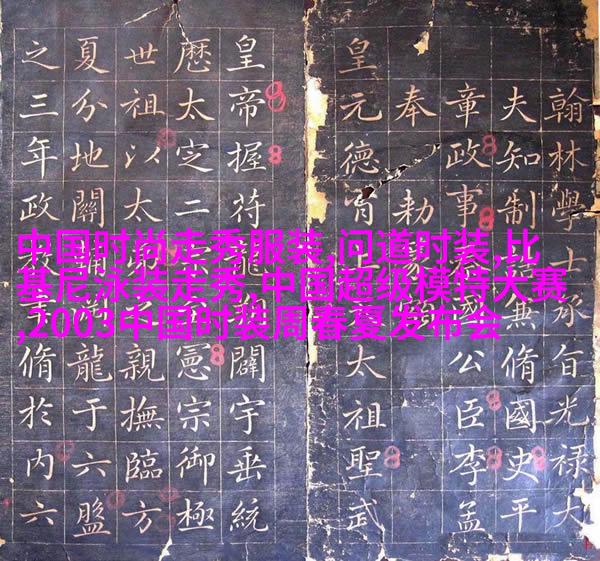 中国时尚走秀服装,问道时装,比
基尼泳装走秀,中国超级模特大赛
,2003中国时装周春夏发布会
翰林學士承旨光祿大
夫知制脩國史平
章政事公臣李孟
奉勅
皇元德太祖聖武
皇帝握符龍闢宇垂統
厯太定二憲宗御極
世祖以太親撫臨方
夏分地關龍于六盤
之三年政脩於内六